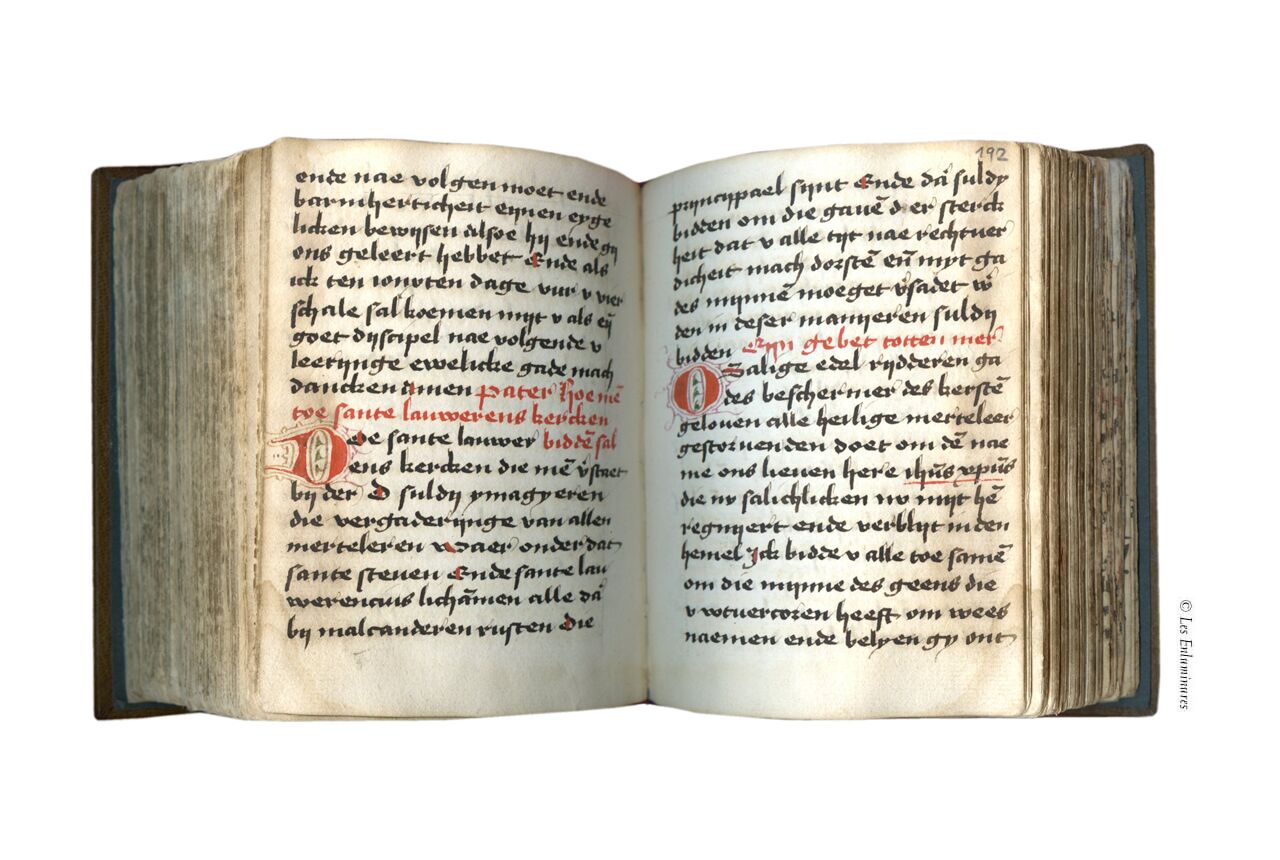 ende nae volgen moet ende
barmherticheit eynen eyge
licken bewijsen alsoe hij ende gij
ons geleert hebbet Ende als
ick ten ionxten dage vur v vier
schale sal koemen mijt v als eȳ
goet dijscipel nae volgende v
leerijnge ewelicke gade mach
dancken Amen Pater Hoe mē
toe sante lauwerens kercken
Ooe sante lauwer biddē sal
ens kercken die mē v̄staet
bij der D suldij ymagyeren
die vergaderijnge van allen
merteleren Waer onder dat
sante steuen Ende sante lau
werencius lichāmen alle dā
bij malcanderen rusten Die
192
pryncypael sijnt Ende dā suldy
bidden om die gauē d er sterck
heit dat v alle tijt nae rechtuer
dicheit mach dorstē eñ myt ga
des mijnnē moeget v̄sadet w̄
den in deser manijeren suldij
bidden Eijn gebet totten mer
O Zalige edel rijdderen ga
des beschermer des kerstē
gelouen alle heilige merteleer
gestoruen den doet om dē nae
me ons lieuen here ihūs xpūs
die nv salichlicken nv mijt hē
regnijert ende verblijt in den
hemel Ick bidde v alle toe samē
om die mijnne des geens die
v wtuercoren heeft om wees
naemen ende belyen gy ont
© Les Enluminures